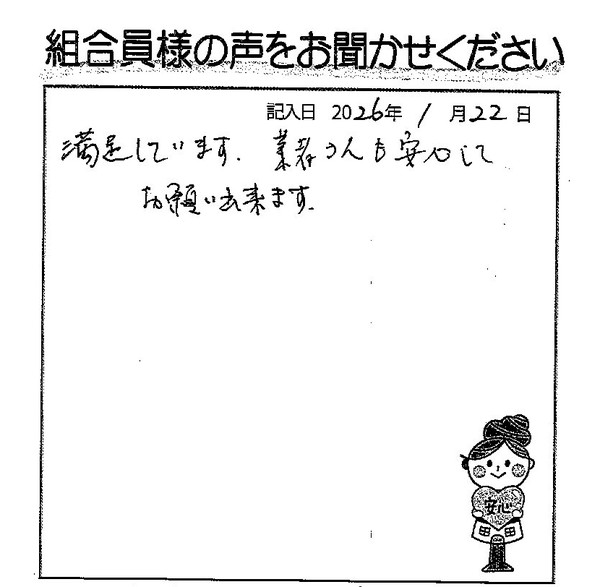 組合員様の声をお聞かせください
記入日 2026年 1月22日
満足しています。業者さんも安心して
お願い出来ます。
安心